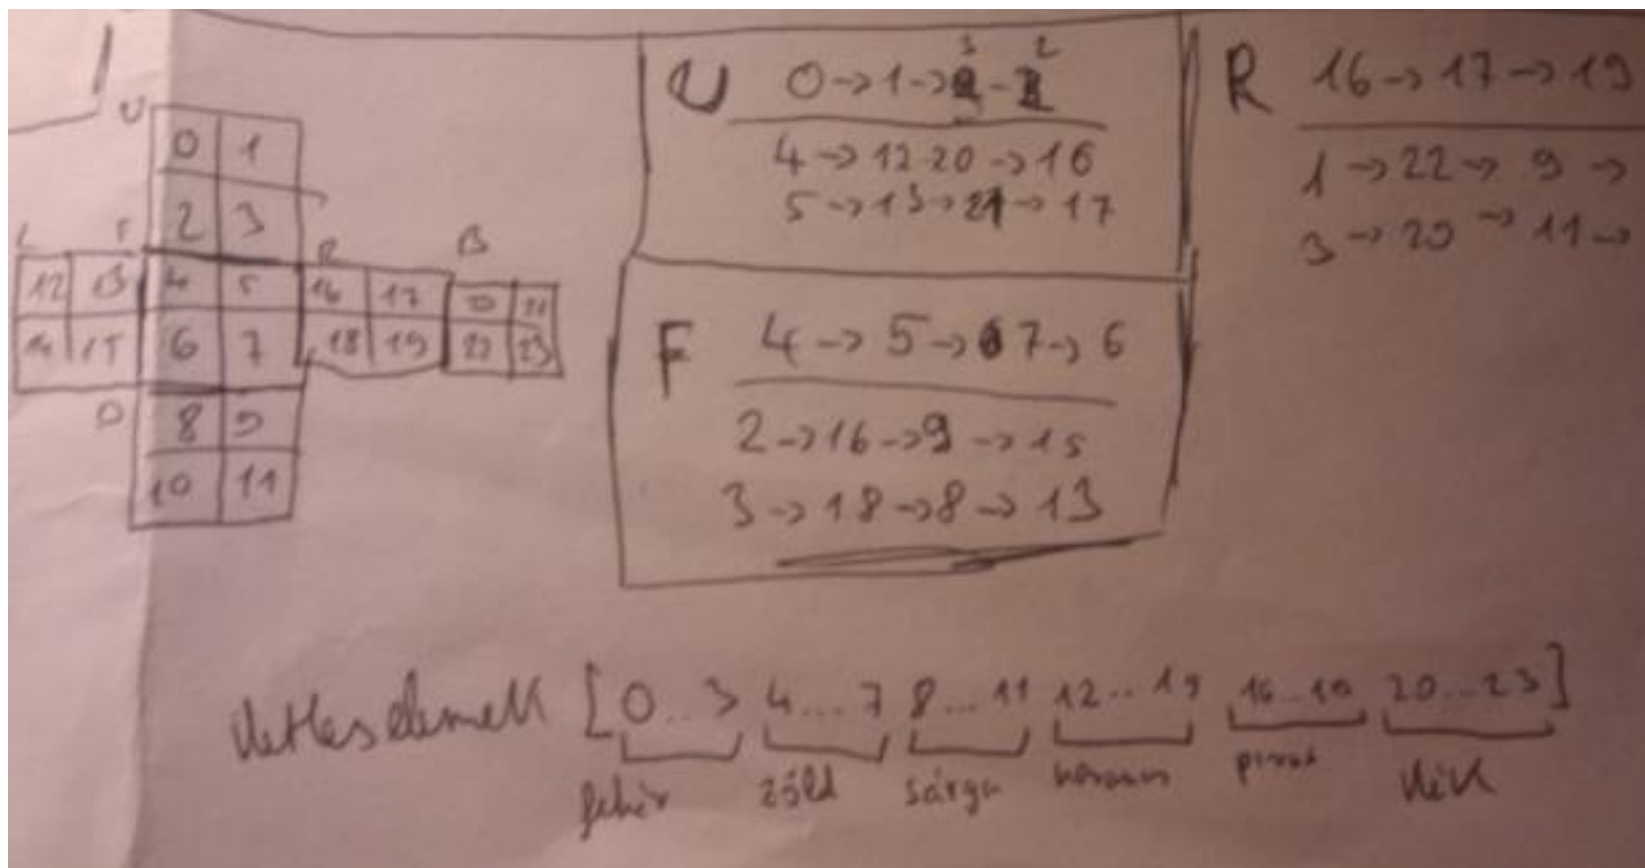 U
0 1
2 3
L F R B
12 13 4 5 16 17 20 21
14 15 6 7 18 19 22 23
D
8 9
10 11
U 0->1->3-2
4->12 20->16
5->13->21->17
F 4->5->7->6
2->16->9->15
3->18->8->13
R 16->17->19
1->22->9->
3->20->11->
[0..3 4...7 8...11 12..15 16..19 20...23]
fehér zöld sárga narancs piros kék